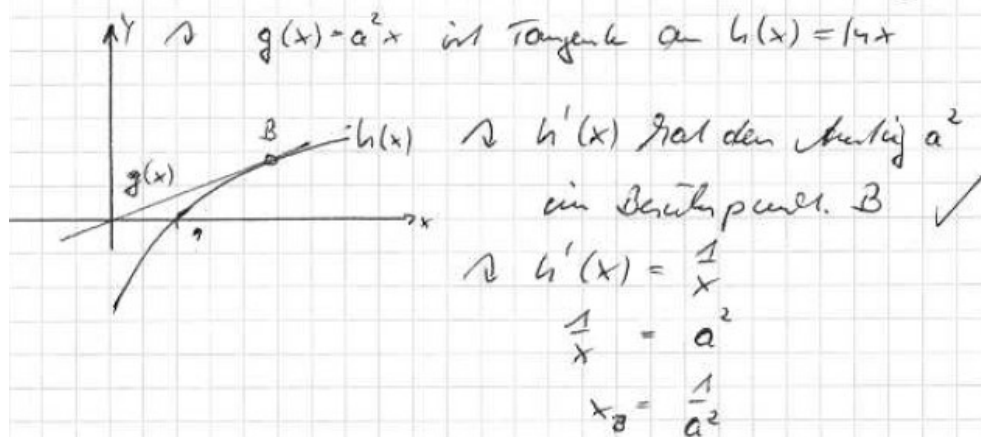 Y
g(x) = a²x ist Tangente an h(x) = ln x
B
h(x)
h'(x) hat den Anstieg a²
g(x)
im Berührpunkt. B ✓
x
1
h'(x) = 1/x
1/x = a²
x_B = 1/a²